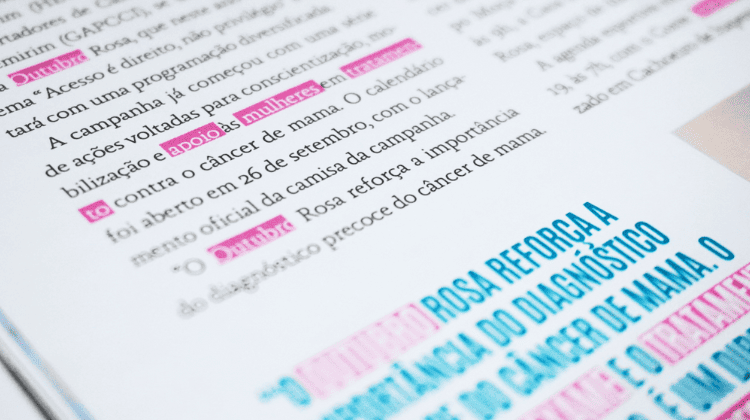 rtadores de Câncer
emirim (GAPCCI), se
a Outubro Rosa, que nesse ano
ema “Acesso é direito, não privilégio”
tará com uma programação diversificada.
A campanha já começou com uma série
de ações voltadas para conscientização, mo-
bilização e apoio às mulheres em tratamen
to contra o câncer de mama. O calendário
foi aberto em 26 de setembro, com o lança-
mento oficial da camisa da campanha.
“O Outubro Rosa reforça a importância
do diagnóstico precoce do câncer de mama.
às 9h, a Casa
Rosa, espaço de
A agenda esportiva
19, às 7h, com o Core
zado em Cachoeira de Itape
“O OUTUBRO ROSA REFORÇA A
IMPORTÂNCIA DO DIAGNÓSTICO
DO CÂNCER DE MAMA. O
E O TRATAMEN
É UM DI